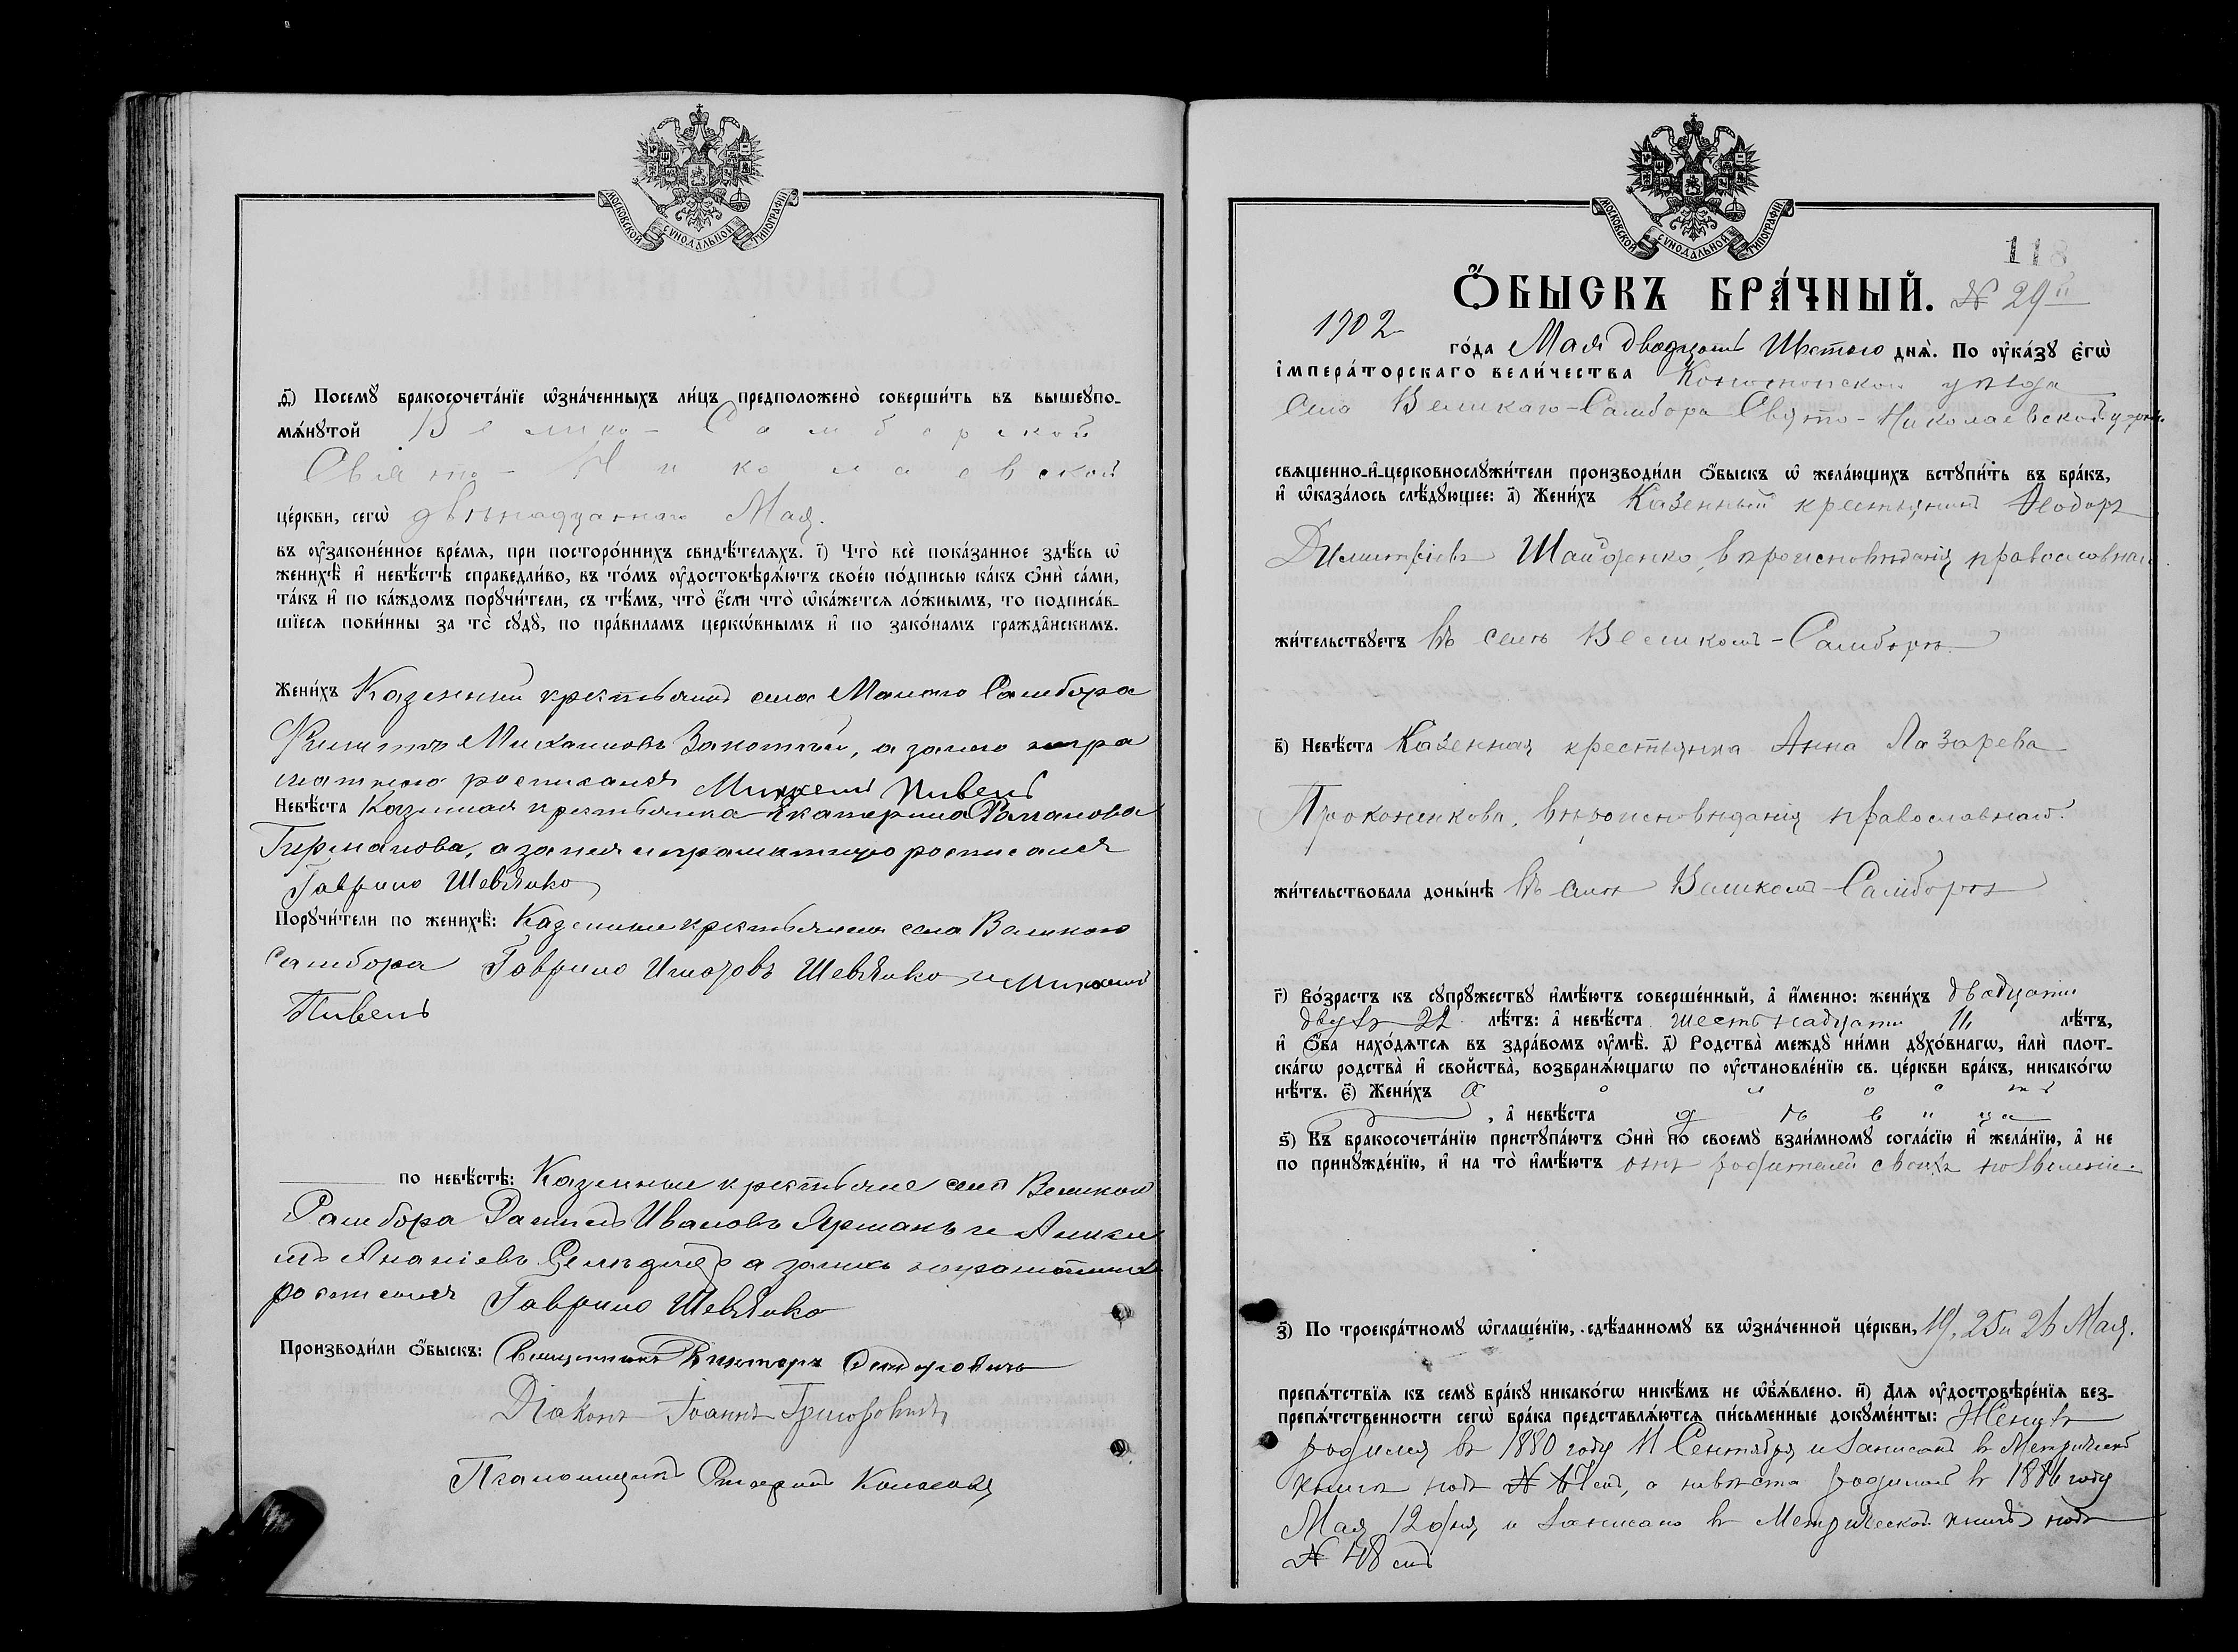 МОСКОВСКОЙ СУНОДАЛЬНОЙ ТИПОГРАФІИ
ѳ҃) Посемꙋ̀ бракосочета́нїе ѡ҆зна́ченныхъ ли́цъ предположено̀ соверши́ть въ вышеꙋпо-
мѧ́нꙋтой Велико-Самборской
Свято-Николаевской
це́ркви, сегѡ̀ двѣнадцатаго Мая.
въ ᲂу҆законе́нное вре́мѧ, при посторо́ннихъ свидѣ́телѧхъ. і҃) Что̀ всѐ пока́занное здѣ́сь ѡ҆
женихѣ̀ и҆ невѣ́стѣ справедли́во, въ то́мъ ᲂу҆достовѣрѧ́ютъ свое́ю по́дписью ка́къ ѻ҆нѝ са́ми,
та́къ и҆ по ка́ждомъ порꙋчи́тели, съ тѣ́мъ, что̀ є҆́сли что̀ ѡ҆ка́жетсѧ ло́жнымъ, то подписа́в-
шїесѧ пови́нны за то̀ сꙋдꙋ̀, по пра́виламъ церкѡ́внымъ и҆ по зако́намъ гражда̑нскимъ.
Жени́хъ Казенный крестьянинъ села Малаго Самбора
Филиппъ Михаиловъ а за него негра
мотнаго росписался Михаилъ Пивень
Невѣ́ста Казенная крестьянка Екатерина Романова
Германова, а за нея неграмотную росписался
Гаврило Шевченко
Порꙋчи́тели по женихѣ̀: Казенные крестьяне села Великаго
Самбора Гаврило Шевченко и Михаилъ
Пивень
по невѣ́стѣ: Казенные крестьяне села Великаго
Самбора Даниилъ Ивановъ Ярмакъ и
Ананіевъ а за нихъ неграмотныхъ
росписался Гаврило Шевченко
Производи́ли ѻ҆́быскъ: Священникъ Викторъ
Діаконъ Іоаннъ Григоровичъ
Псаломщикъ
МОСКОВСКОЙ СУНОДАЛЬНОЙ ТИПОГРАФІИ
118
Ѻ҆́БЫСКЪ БРА́ЧНЫЙ. № 29й
1902
го́да Мая двадцать Шестого днѧ̀. По ᲂу҆ка́зꙋ є҆гѡ̀
і҆мпера́торскаго вели́чества Конотопскаго уѣзда
Села Великаго-Самбора Свято-Николаевской церкви
сщ҃е́нно-и҆-церковнослꙋжи́тели производи́ли ѻ҆́быскъ ѡ҆ жела́ющихъ встꙋпи́ть въ бра́къ,
и҆ ѡ҆каза́лось слѣ́дꙋющее: а҃) Жени́хъ Казенный крестьянинъ Ѳеодоръ
Димитріевъ Шайденко, вѣроисповѣданія православнаго
жи́тельствꙋетъ въ селѣ Великомъ-Самборѣ
в҃) Невѣ́ста Казенная крестьянка Анна Лазарева
Прокопенкова, вѣроисповѣданія православнаго.
жи́тельствовала доны́нѣ въ селѣ Великомъ-Самборѣ
г҃) Во́зрастъ къ сꙋпрꙋ́жествꙋ и҆мѣ́ютъ соверше́нный, а҆ и҆́менно: жени́хъ двадцати
двухъ 22 лѣ́тъ: а҆ невѣ́ста шестнадцати лѣ́тъ,
и҆ ѻ҆́ба нахо́дѧтсѧ въ здра́вомъ ᲂу҆мѣ̀. д҃) Родства̀ междꙋ̀ ни́ми дꙋхо́внагѡ, и҆лѝ плот-
ска́гѡ родства̀ и҆ свойства̀, возбранѧ́ющагѡ по ᲂу҆становле́нїю св. це́ркви бра́къ, никако́гѡ
нѣ́тъ. є҃) Жени́хъ холостъ
, а҆ невѣ́ста дѣвица
ѕ҃) Къ бракосочета́нїю пристꙋпа́ютъ ѻ҆нѝ по своемꙋ̀ взаи́мномꙋ согла́сїю и҆ жела́нїю, а҆ не
по принꙋжде́нїю, и҆ на то̀ и҆мѣ́ютъ отъ родителей своихъ позволеніе.
з҃) По троекра́тномꙋ ѡ҆глаше́нїю, сдѣ́ланномꙋ въ ѡ҆зна́ченной це́ркви, 19, 25 и 26 Мая.
препѧ́тствїѧ къ семꙋ̀ бра́кꙋ никако́гѡ никѣ́мъ не ѡ҆б̾ѧ́влено. и҃) Длѧ ᲂу҆достовѣре́нїѧ без-
препѧ́тственности сегѡ̀ бра́ка представлѧ́ютсѧ пи́сьменные докꙋме́нты: Женихъ
родился въ 1880 году 11 Сентября и записанъ въ Метрической
книгѣ подъ № а невѣста родилась въ 1886 году
Мая 12 дня и записана въ Метрической книгѣ подъ
№ 48 смъ